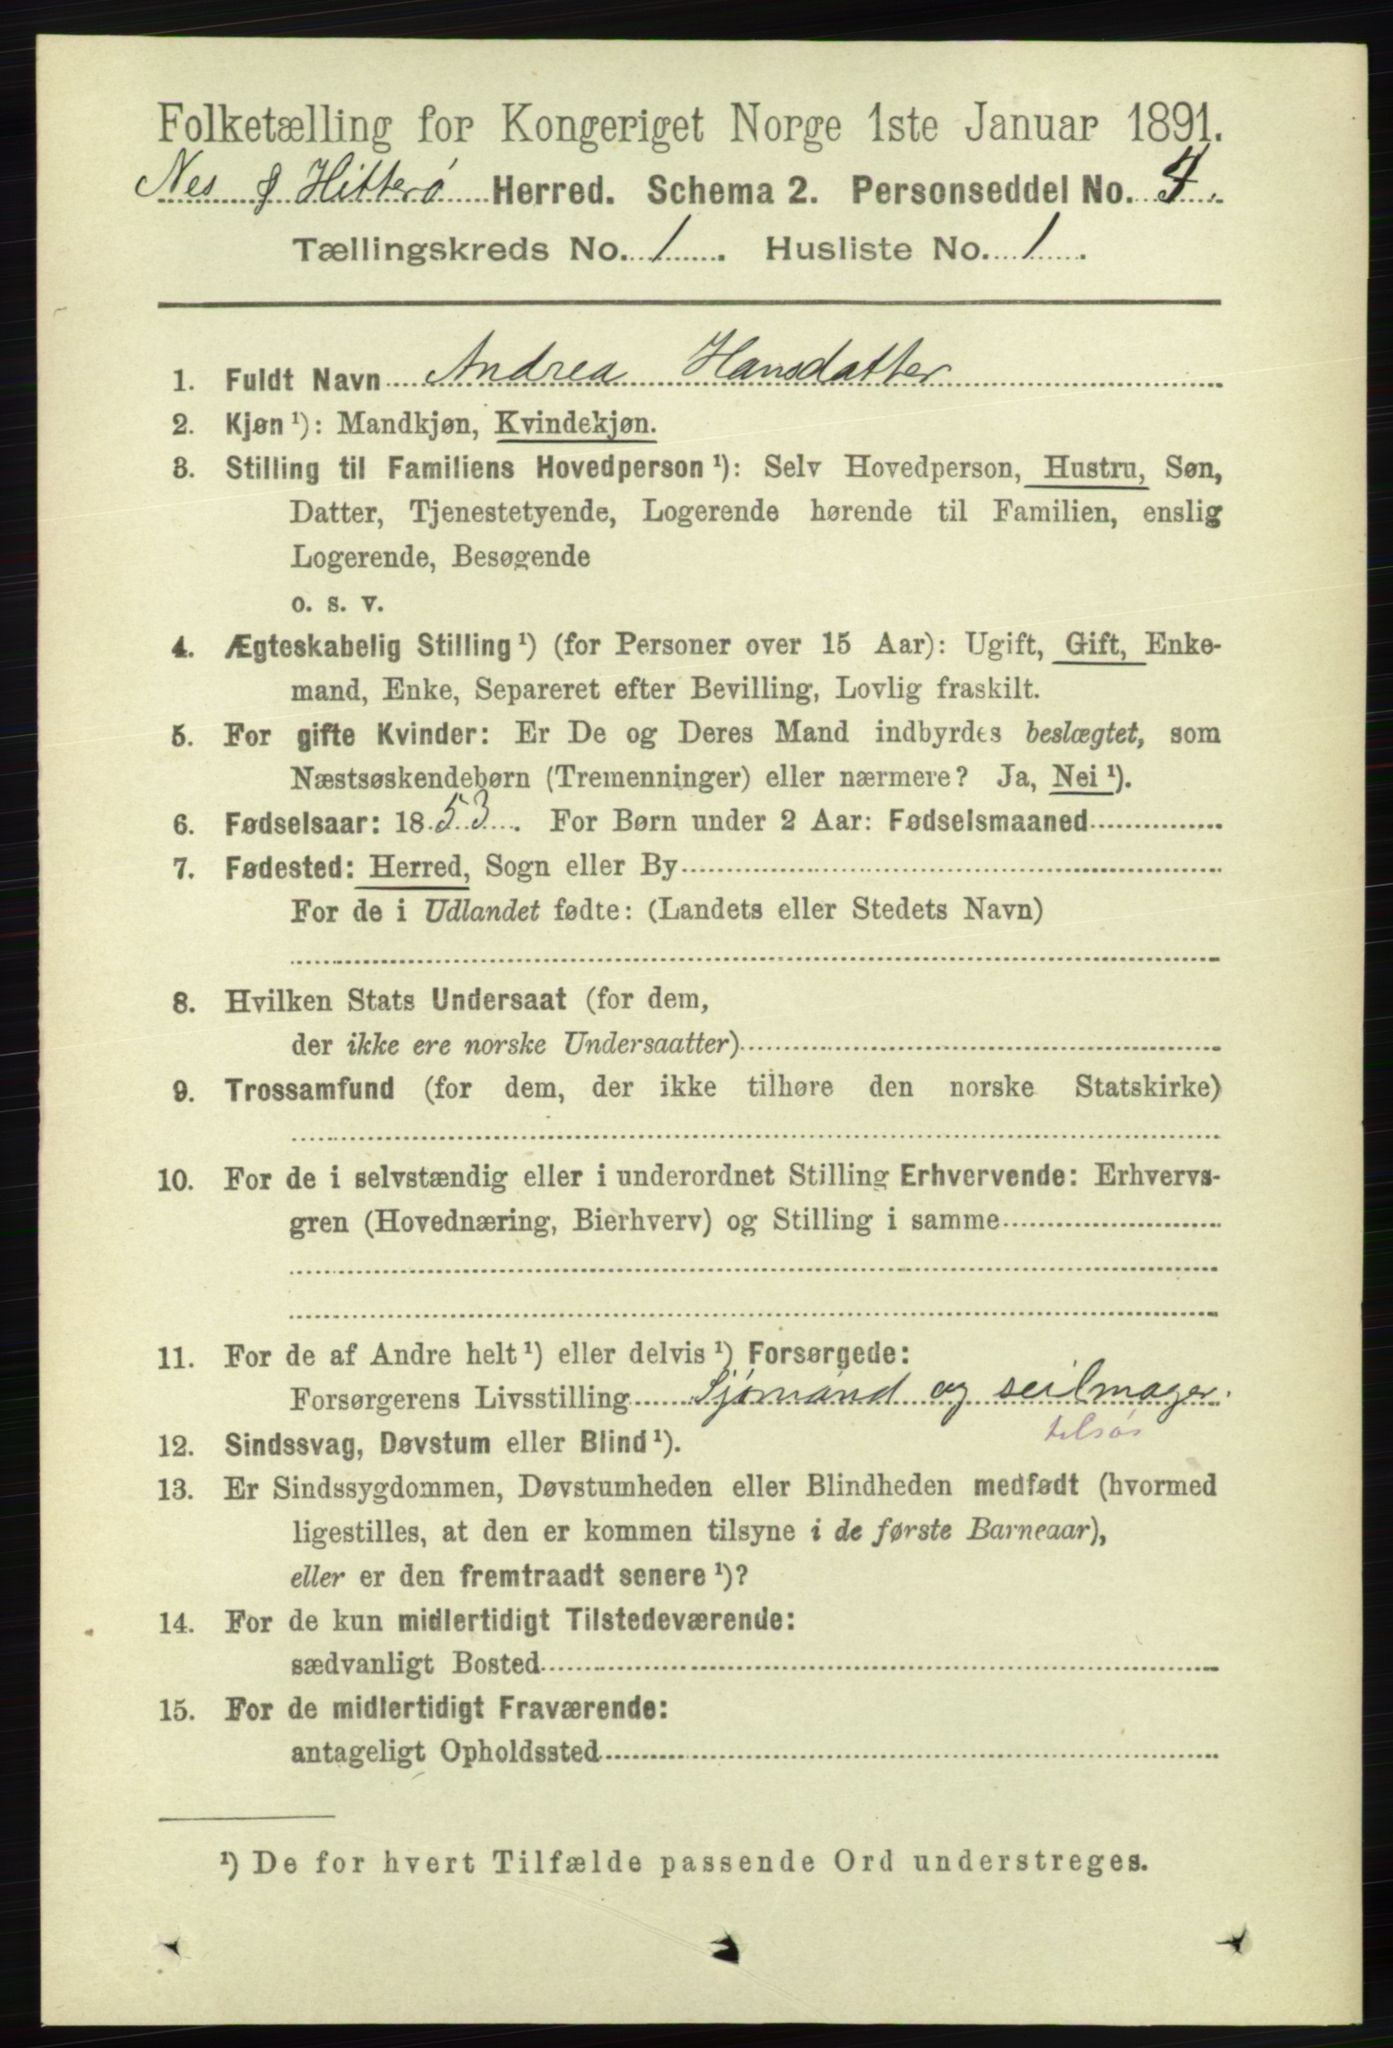 Folketælling for Kongeriget Norge 1ste Januar 1891.
Nes & Hitterø Herred. Schema 2. Personseddel No. 4.
Tællingskreds No. 1. Husliste No. 1.
1. Fuldt Navn Andrea Hansdatter
2. Kjøn ¹): Mandkjøn, Kvindekjøn.
3. Stilling til Familiens Hovedperson ¹): Selv Hovedperson, Hustru, Søn,
Datter, Tjenestetyende, Logerende hørende til Familien, enslig
Logerende, Besøgende
o. s. v.
4. Ægteskabelig Stilling ¹) (for Personer over 15 Aar): Ugift, Gift, Enke-
mand, Enke, Separeret efter Bevilling, Lovlig fraskilt.
5. For gifte Kvinder: Er De og Deres Mand indbyrdes beslægtet, som
Næstsøskendebørn (Tremenninger) eller nærmere? Ja, Nei ¹).
6. Fødselsaar: 1853. For Børn under 2 Aar: Fødselsmaaned
7. Fødested: Herred, Sogn eller By
For de i Udlandet fødte: (Landets eller Stedets Navn)
8. Hvilken Stats Undersaat (for dem,
der ikke ere norske Undersaatter)
9. Trossamfund (for dem, der ikke tilhøre den norske Statskirke)
10. For de i selvstændig eller i underordnet Stilling Erhvervende: Erhvervs-
gren (Hovednæring, Bierhverv) og Stilling i samme
11. For de af Andre helt ¹) eller delvis ¹) Forsørgede:
Forsørgerens Livsstilling Sjømand og seilmager.
tilsøs
12. Sindssvag, Døvstum eller Blind ¹).
13. Er Sindssygdommen, Døvstumheden eller Blindheden medfødt (hvormed
ligestilles, at den er kommen tilsyne i de første Barneaar),
eller er den fremtraadt senere ¹)?
14. For de kun midlertidigt Tilstedeværende:
sædvanligt Bosted
15. For de midlertidigt Fraværende:
antageligt Opholdssted
¹) De for hvert Tilfælde passende Ord understreges.